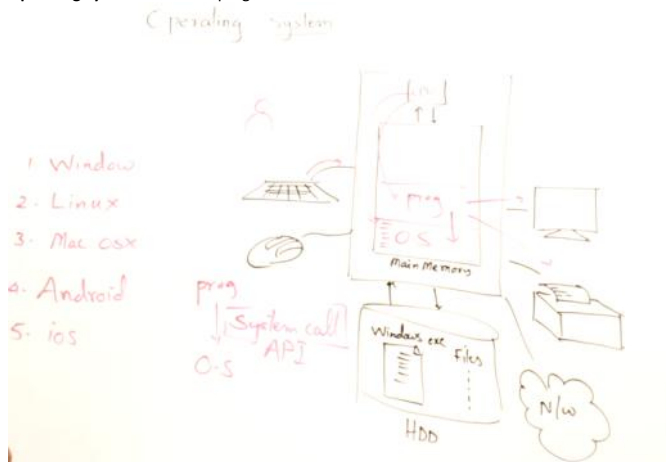 Operating System
1. Window
2. Linux
3. Mac osx
4. Android
5. ios
prog
O.S
Main Memory
prog
System call
API
O.S
Windows exe
Files
HDD
N/w